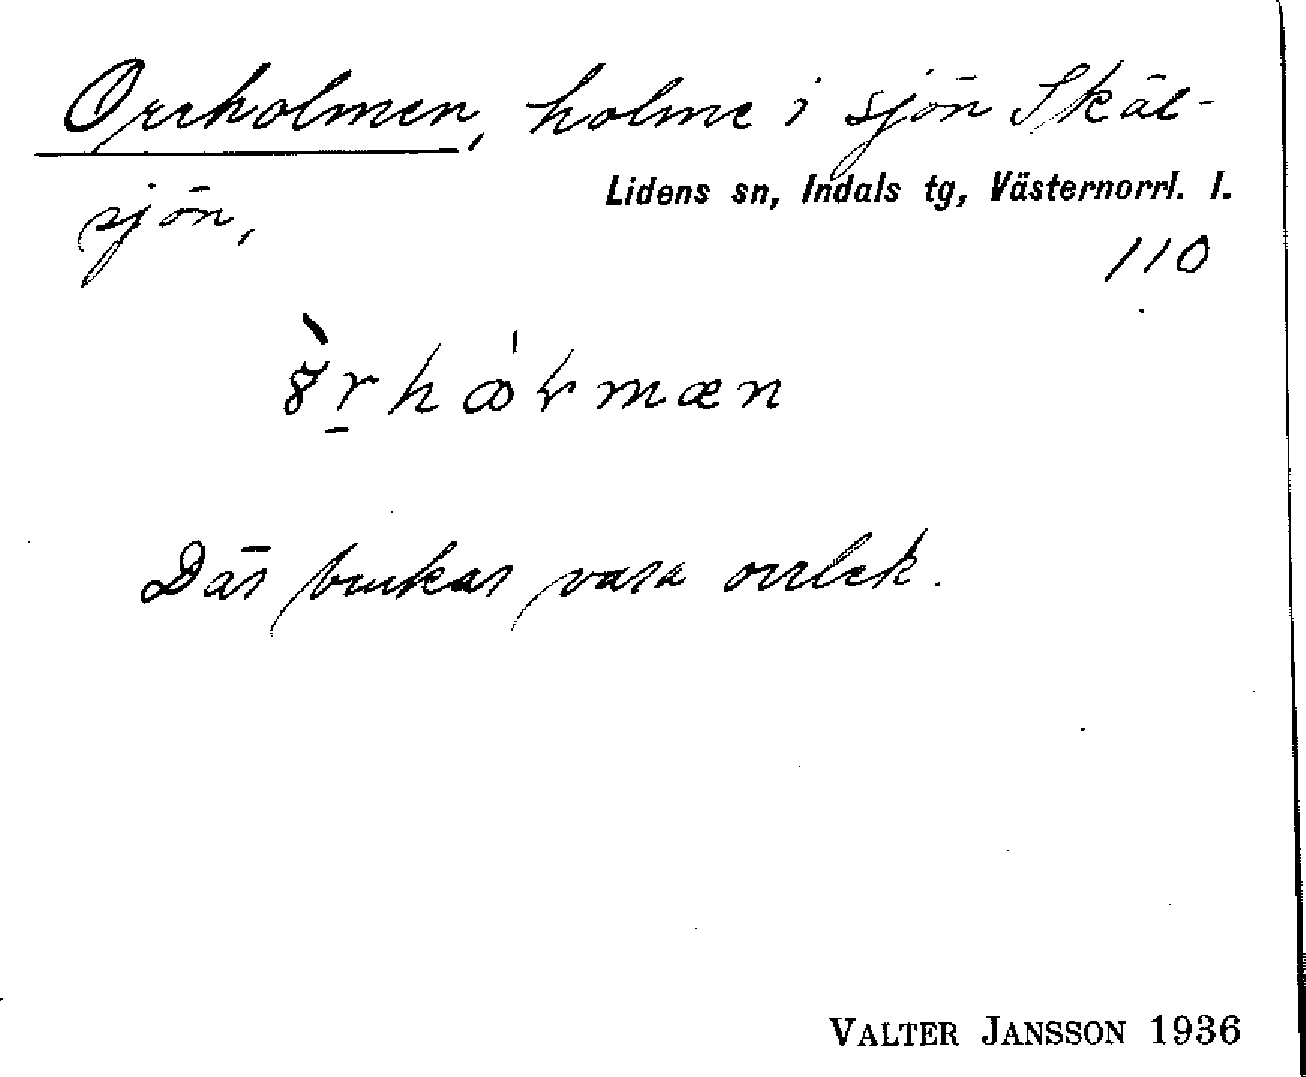 Orrholmen, holme i sjön Skäl-
sjön,
Lidens sn, Indals tg, Västernorrl. l.
110
Där brukar vara orrlek.
VALTER JANSSON 1936